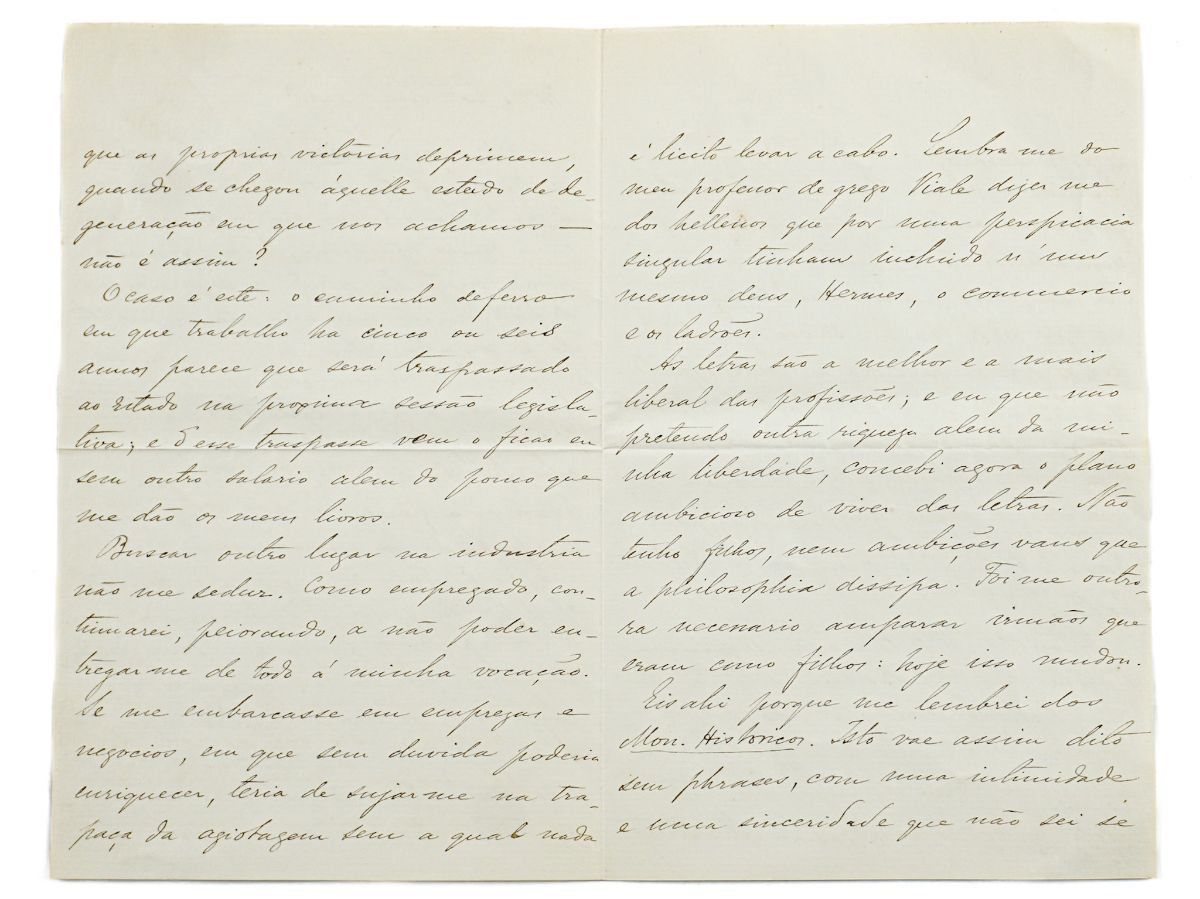 que as proprias victorias deprimem,
quando se chegou áquelle estado de de-
generação em que nos achamos —
não é assim?
O caso é este: o caminho de ferro
em que trabalho ha cinco ou seis
annos parece que será traspassado
ao Estado na proxima sessão legisla-
tiva; e d'esse traspasse vem o ficar eu
sem outro salario alem do pouco que
me dão os meus livros.
Buscar outro lugar na industria
não me seduz. Como empregado, con-
tinuarei, peiorando, a não poder en-
tregar me de todo á minha vocação.
Se me embarcasse em emprezas e
negocios, em que sem duvida poderia
enriquecer, teria de sujar me na tra-
paça da agiotagem sem a qual nada
é licito levar a cabo. Lembra me do
meu professor de grego Viale dizer me
dos hellenos que por uma perspicacia
singular tinham incluido n'um
mesmo deus, Hermes, o commercio
e os ladrões.
As letras são a melhor e a mais
liberal das profissões; e eu que não
pretendo outra riqueza alem da mi-
nha liberdade, concebi agora o plano
ambicioso de viver das letras. Não
tenho filhos, nem ambições vans que
a philosophia dissipa. Foi me outro-
ra necessario amparar irmãos que
eram como filhos: hoje isso mudou.
Eis ahi porque me lembrei dos
Mon. Historicos. Isto vae assim dito
sem phrases, com uma intimidade
e uma sinceridade que não sei se